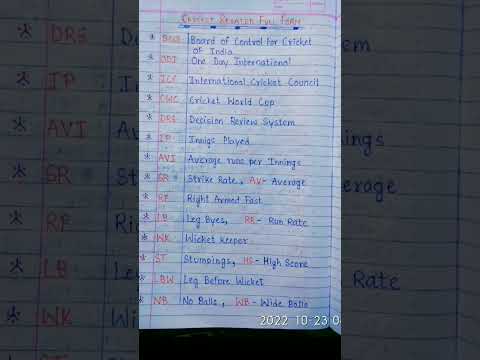 CRICKET RELATED FULL FORM
* BCCI Board of Control for Cricket
of India
* ODI One Day International
* ICC International Cricket Council
* CWC Cricket World Cup
* DRS Decision Review System
* IP Innigs Played
* AVI Average runs per Innings
* SR Strike Rate, AV- Average
* RF Right Armed Fast
* LB Leg Byes, RR- Run Rate
* WK Wicket keeper
* ST Stumpings, HS- High Score
* LBW Leg Before Wicket
* NB No Balls, WB- Wide Balls
2022 10-23 0